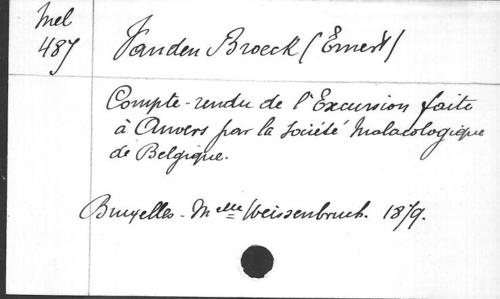 Mel
487
Vanden Broeck (Ernest)
Compte-rendu de l'Excursion faite
à Anvers par la Société Malacologique
de Belgique.
Bruxelles - Melle Weissenbruch. 1879.